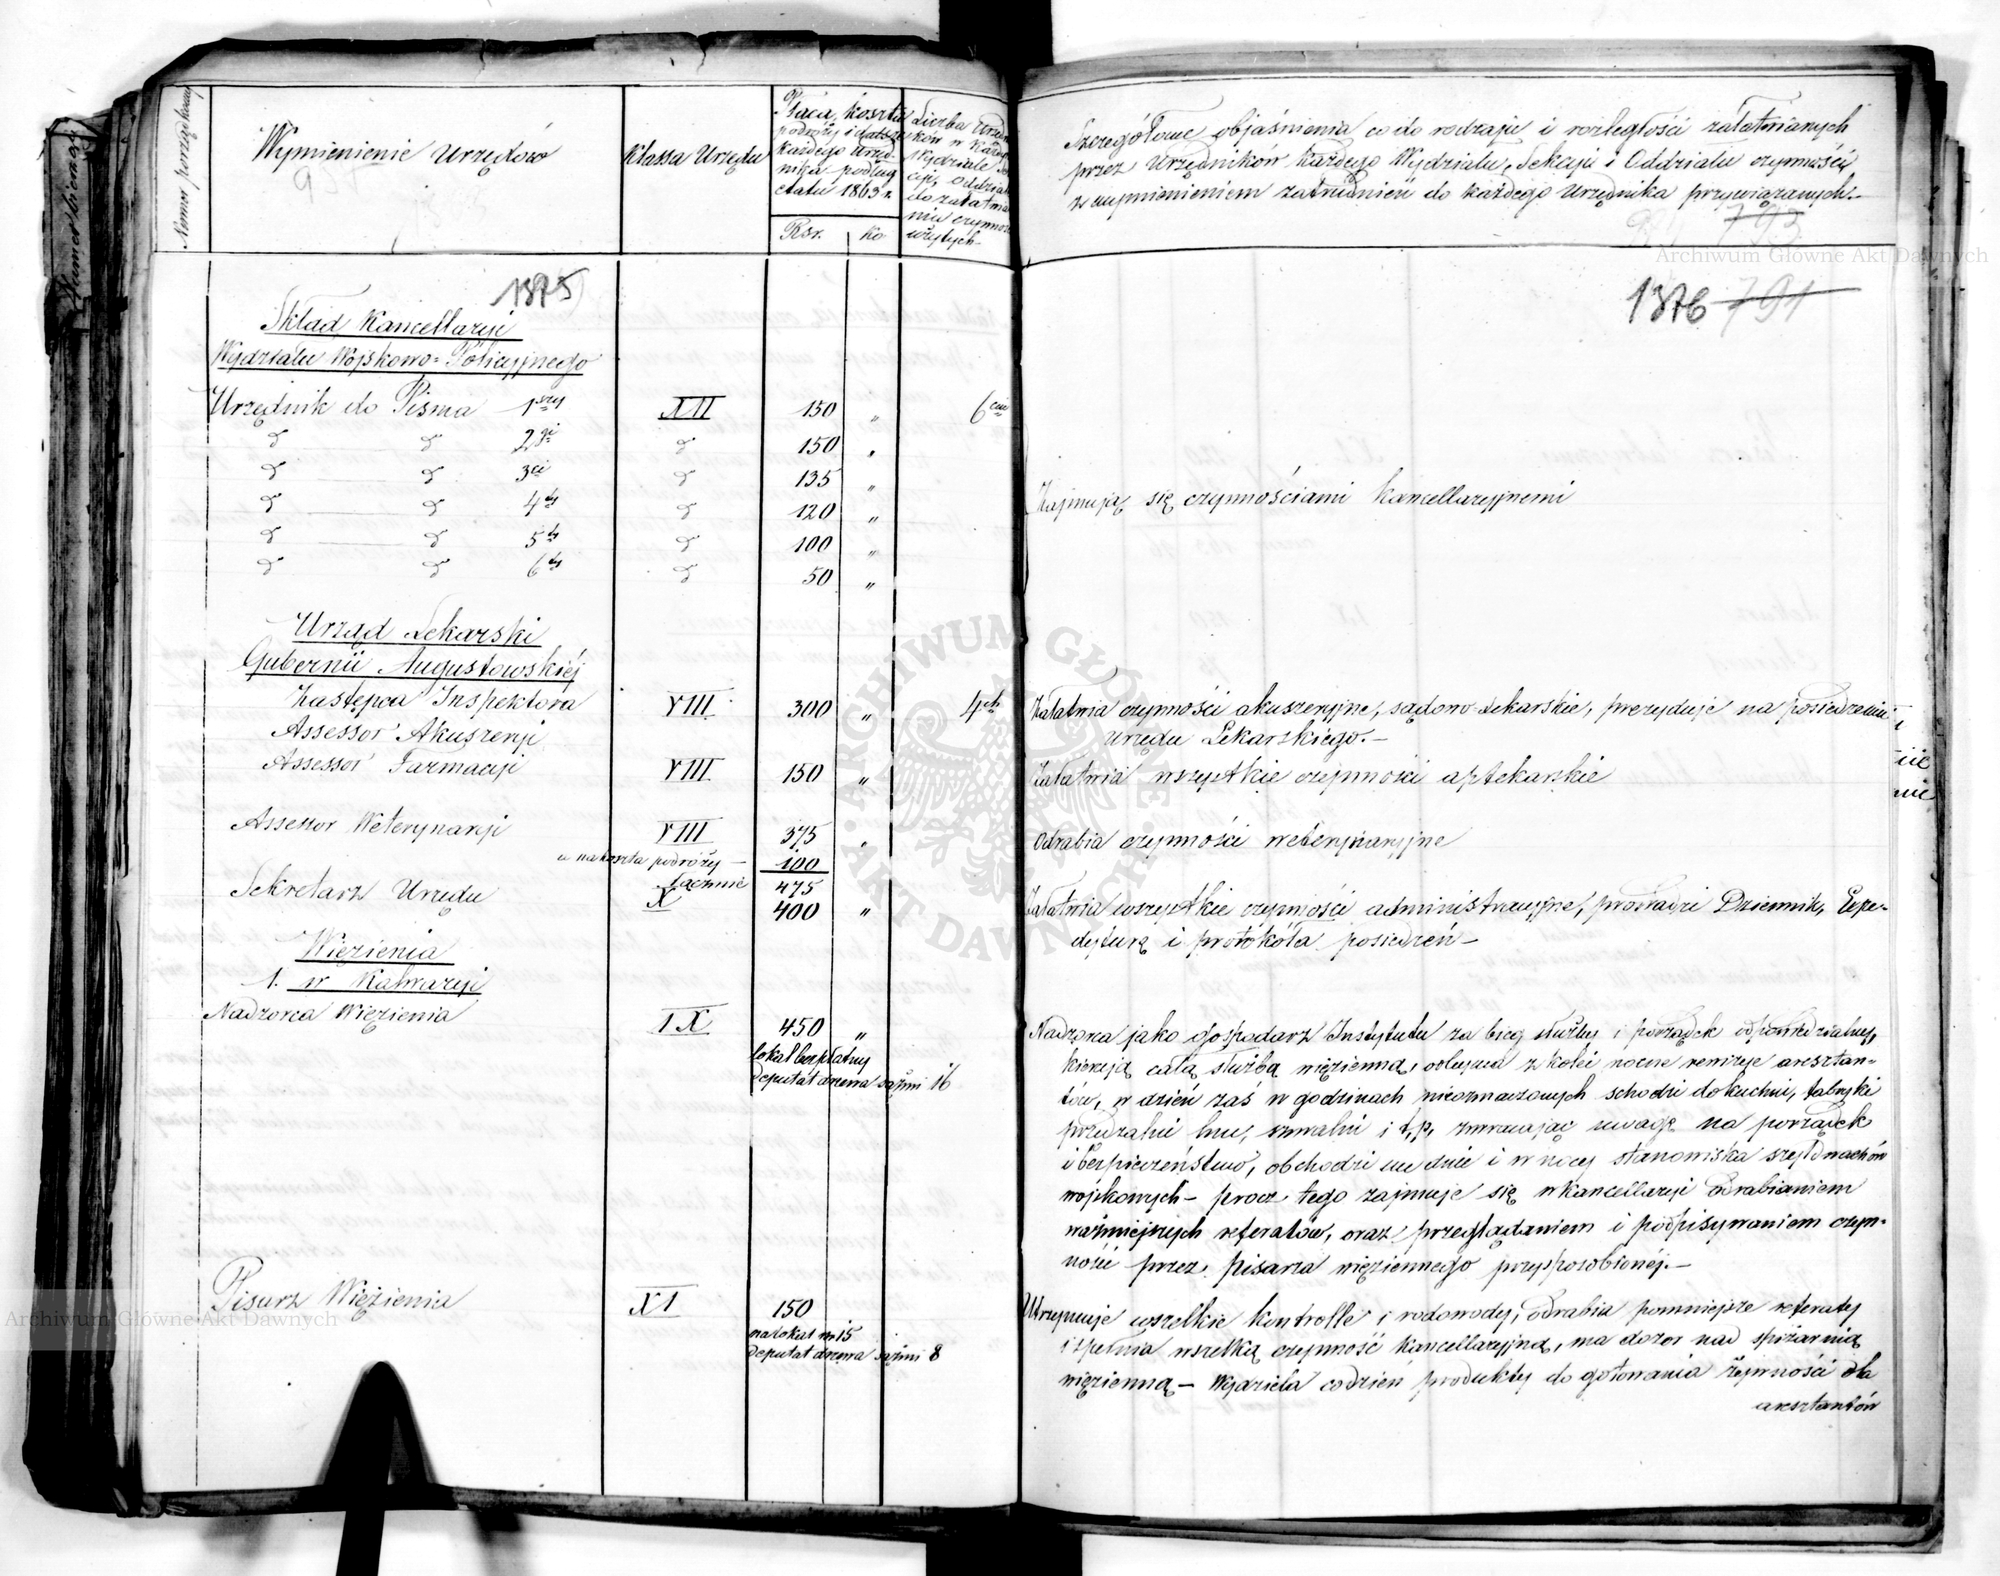 Numer porządkowy
Wymienienie Urzędów
Klassa Urzędu
Płaca, koszta
podróży i datsze
każdego Urzęd-
nika podług
etatu 1863 r.
Rsr. ko
Liczba Urzęd
ków w każd
Wydziale Se
cji, Oddzia
do załatwia
nia czynnoś
użytych
1375
Skład Kancellaryi
Wydziału Wojskowo-Policyjnego
Urzędnik do Pisma 1szy XII 150 „ 6ciu
d d 2gi d 150 „
d d 3ci d 135 „
d d 4ty d 120 „
d d 5ty d 100 „
d d 6ty d 50 „
Urząd Lekarski
Gubernii Augustowskiéj
Zastępca Inspektora VIII 300 „ 4ch
Assessor Akuszeryi
Assessor Farmacyi VIII 150 „
Assessor Weterynaryi VIII 375 „
a na koszta podróży — 100
łącznie 475
Sekretarz Urzędu X 400 „
Więzienia
1. w Kalwaryi
Nadzorca Więzienia IX 450 „
lokal bezpłatny
deputat drzewa sążni 16
Pisarz Więzienia XI 150
na lokal rs 15
deputat drzewa sążni 8
Szczegółowe objaśnienia co do rodzaju i rozległości załatwianych
przez Urzędników każdego Wydziału, Sekcyi i Oddziału czynności
z wymienieniem zatrudnień do każdego Urzędnika przywiązanych.—
793
1376 791
Zajmują się czynnościami kancellaryjnemi
Załatwia czynności akuszeryjne, sądowo-Lekarskie, prezyduje na posiedzeniu
Urzędu Lekarskiego.—
Załatwia wszystkie czynności aptekarskie
Odrabia czynności weterynaryjne
Załatwia wszystkie czynności administracyjne, prowadzi Dziennik, Expe-
dyturę i protokóła posiedzeń—
Nadzorca jako gospodarz Instytutu za bieg służby i porządek odpowiedzialny,
kieruje całą służbą więzienną, odbywa z kolei nocne rewizye aresztan-
tów, w dzień zaś w godzinach nieoznaczonych schodzi do kuchni, fabryki
przędzalni lnu, szwalni i t.p. zwracając uwagę na porządek
i bezpieczeństwo, obchodzi we dnie i w nocy stanowiska szyldwachów
wojskowych — procz tego zajmuje się w kancellaryi odrabianiem
ważniejszych referatów, oraz przeglądaniem i podpisywaniem czyn-
ność przez pisarza więziennego przysposobionéj.—
Utrzymuje wszelkie kontrolle i rodowody, odrabia pomniejsze referaty
i spełnia wszelką czynność kancellaryjną, ma dozor nad spiżarnią
więzienną — Wydziela codzień produkty do gotowania żywności dla
aresztantów
Archiwum Główne Akt Dawnych
Archiwum Główne Akt Dawnych
ARCHIWUM GŁÓWNE AKT DAWNYCH